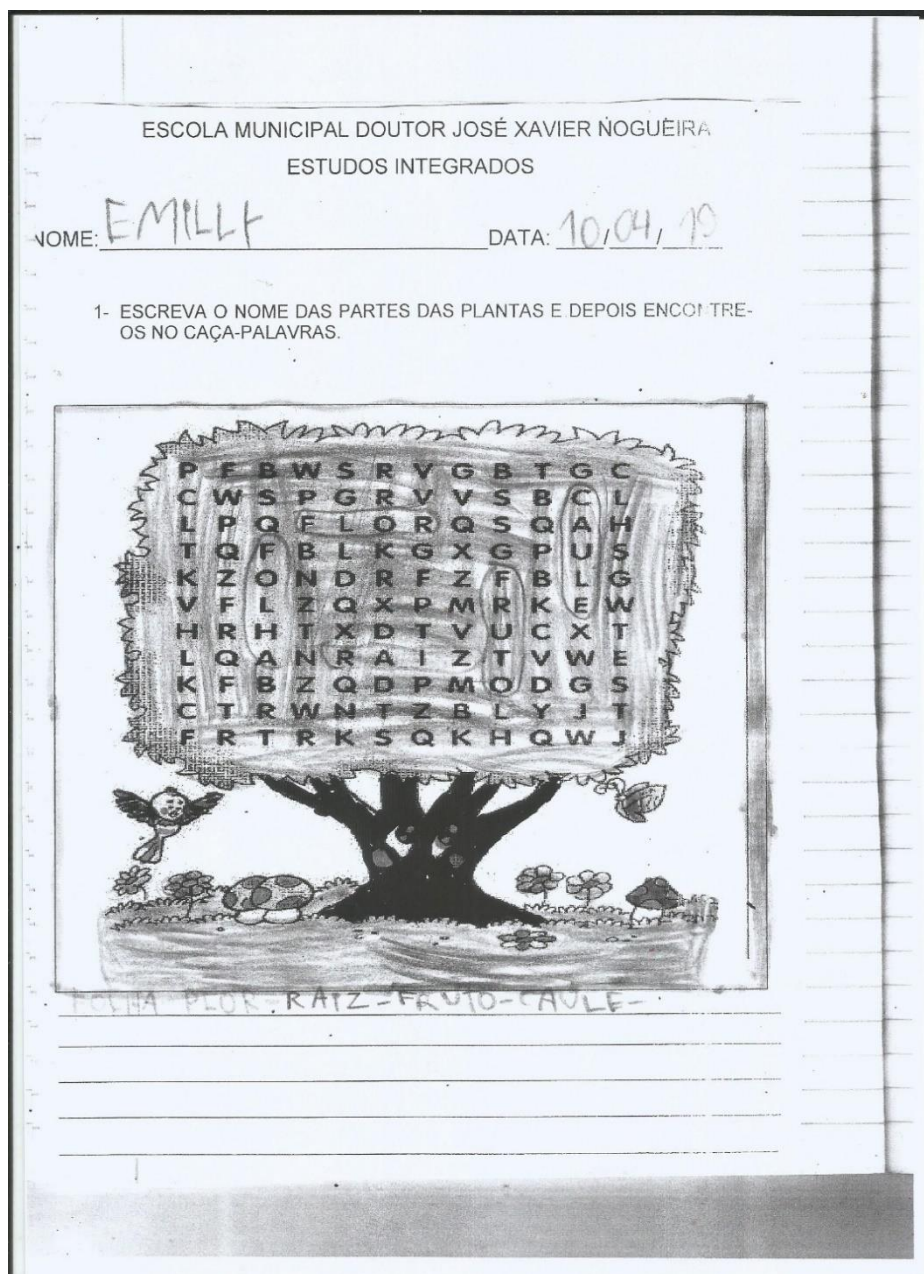 ESCOLA MUNICIPAL DOUTOR JOSÉ XAVIER NOGUEIRA
ESTUDOS INTEGRADOS
NOME: EMILLY DATA: 10/04/19
1- ESCREVA O NOME DAS PARTES DAS PLANTAS E DEPOIS ENCONTRE-
OS NO CAÇA-PALAVRAS.
P F B W S R V G B T G C
C W S P G R V V S B C L
L P Q F L O R Q S Q A H
T Q F B L K G X G P U S
K Z O N D R F Z F B L G
V F L Z Q X P M R K E W
H R H T X D T V U C X T
L Q A N R A I Z T V W E
K F B Z Q D P M O D G S
C T R W N T Z B L Y J T
F R T R K S Q K H Q W J
FOLHA FLOR-RAIZ-FRUTO-CAULE-